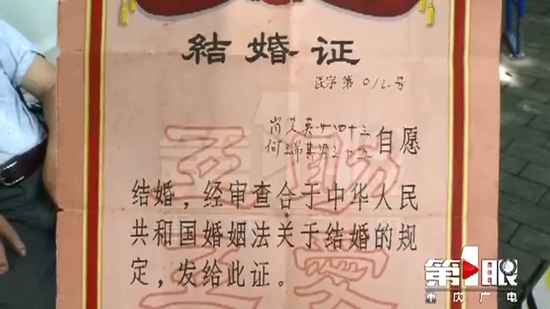 結婚证
字第012号
自愿
结婚，经审查合于中华人民
共和国婚姻法关于结婚的规
定，发给此证。
第1眼
重庆广电